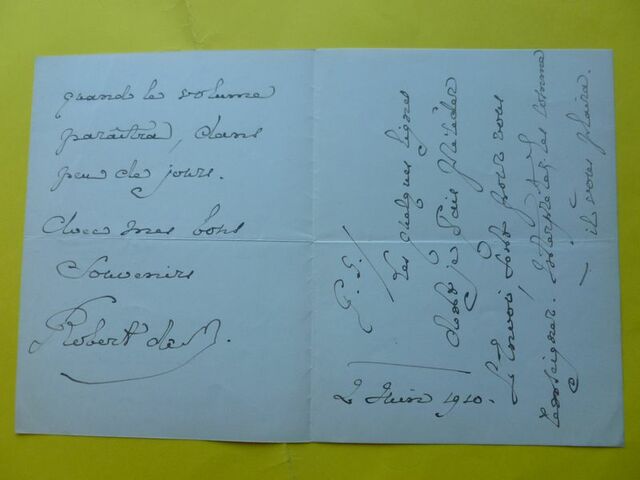 quand le volume
paraîtra, dans
peu de jours.
Avec mes bons
Souvenirs
Robert de M.
2 Juin 1910.
P. S. /
Les quelques lignes
dont je fais précéder
l'Envoi, sont pour vous
renseigner. Interprétez-les comme
— il vous plaira.